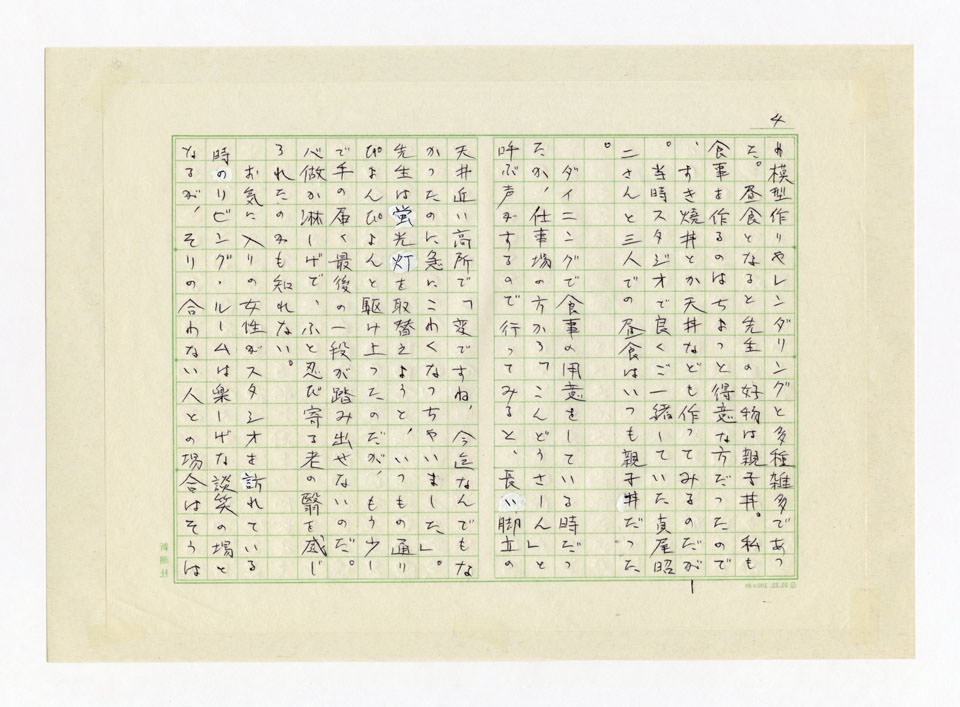 4
は模型作りやレンダリングと多種雑多であっ
た。昼食となると先生の好物は親子丼。私も
食事を作るのはちょっと得意な方だったので
、すき焼丼とか天丼なども作ってみるのだが
。当時スタジオで良くご一緒していた真尾昭
二さんと三人での昼食はいつも親子丼だった
。
ダイニングで食事の用意をしている時だっ
たが、仕事場の方から「こんどうさーん」と
呼ぶ声がするので行ってみると、長い脚立の
天井近い高所で「変ですね、今迄なんでもな
かったのに急にこわくなっちゃいました」。
先生は蛍光灯を取替えようと、いつもの通り
ぴょんぴょんと駆け上ったのだが、もう少し
で手の届く最後の一段が踏み出せないのだ。
心做か淋しげで、ふと忍び寄る老の翳を感じ
られたのかも知れない。
お気に入りの女性がスタジオを訪れている
時のリビング・ルームは楽しげな談笑の場と
なるが、そりの合わない人との場合はそうは